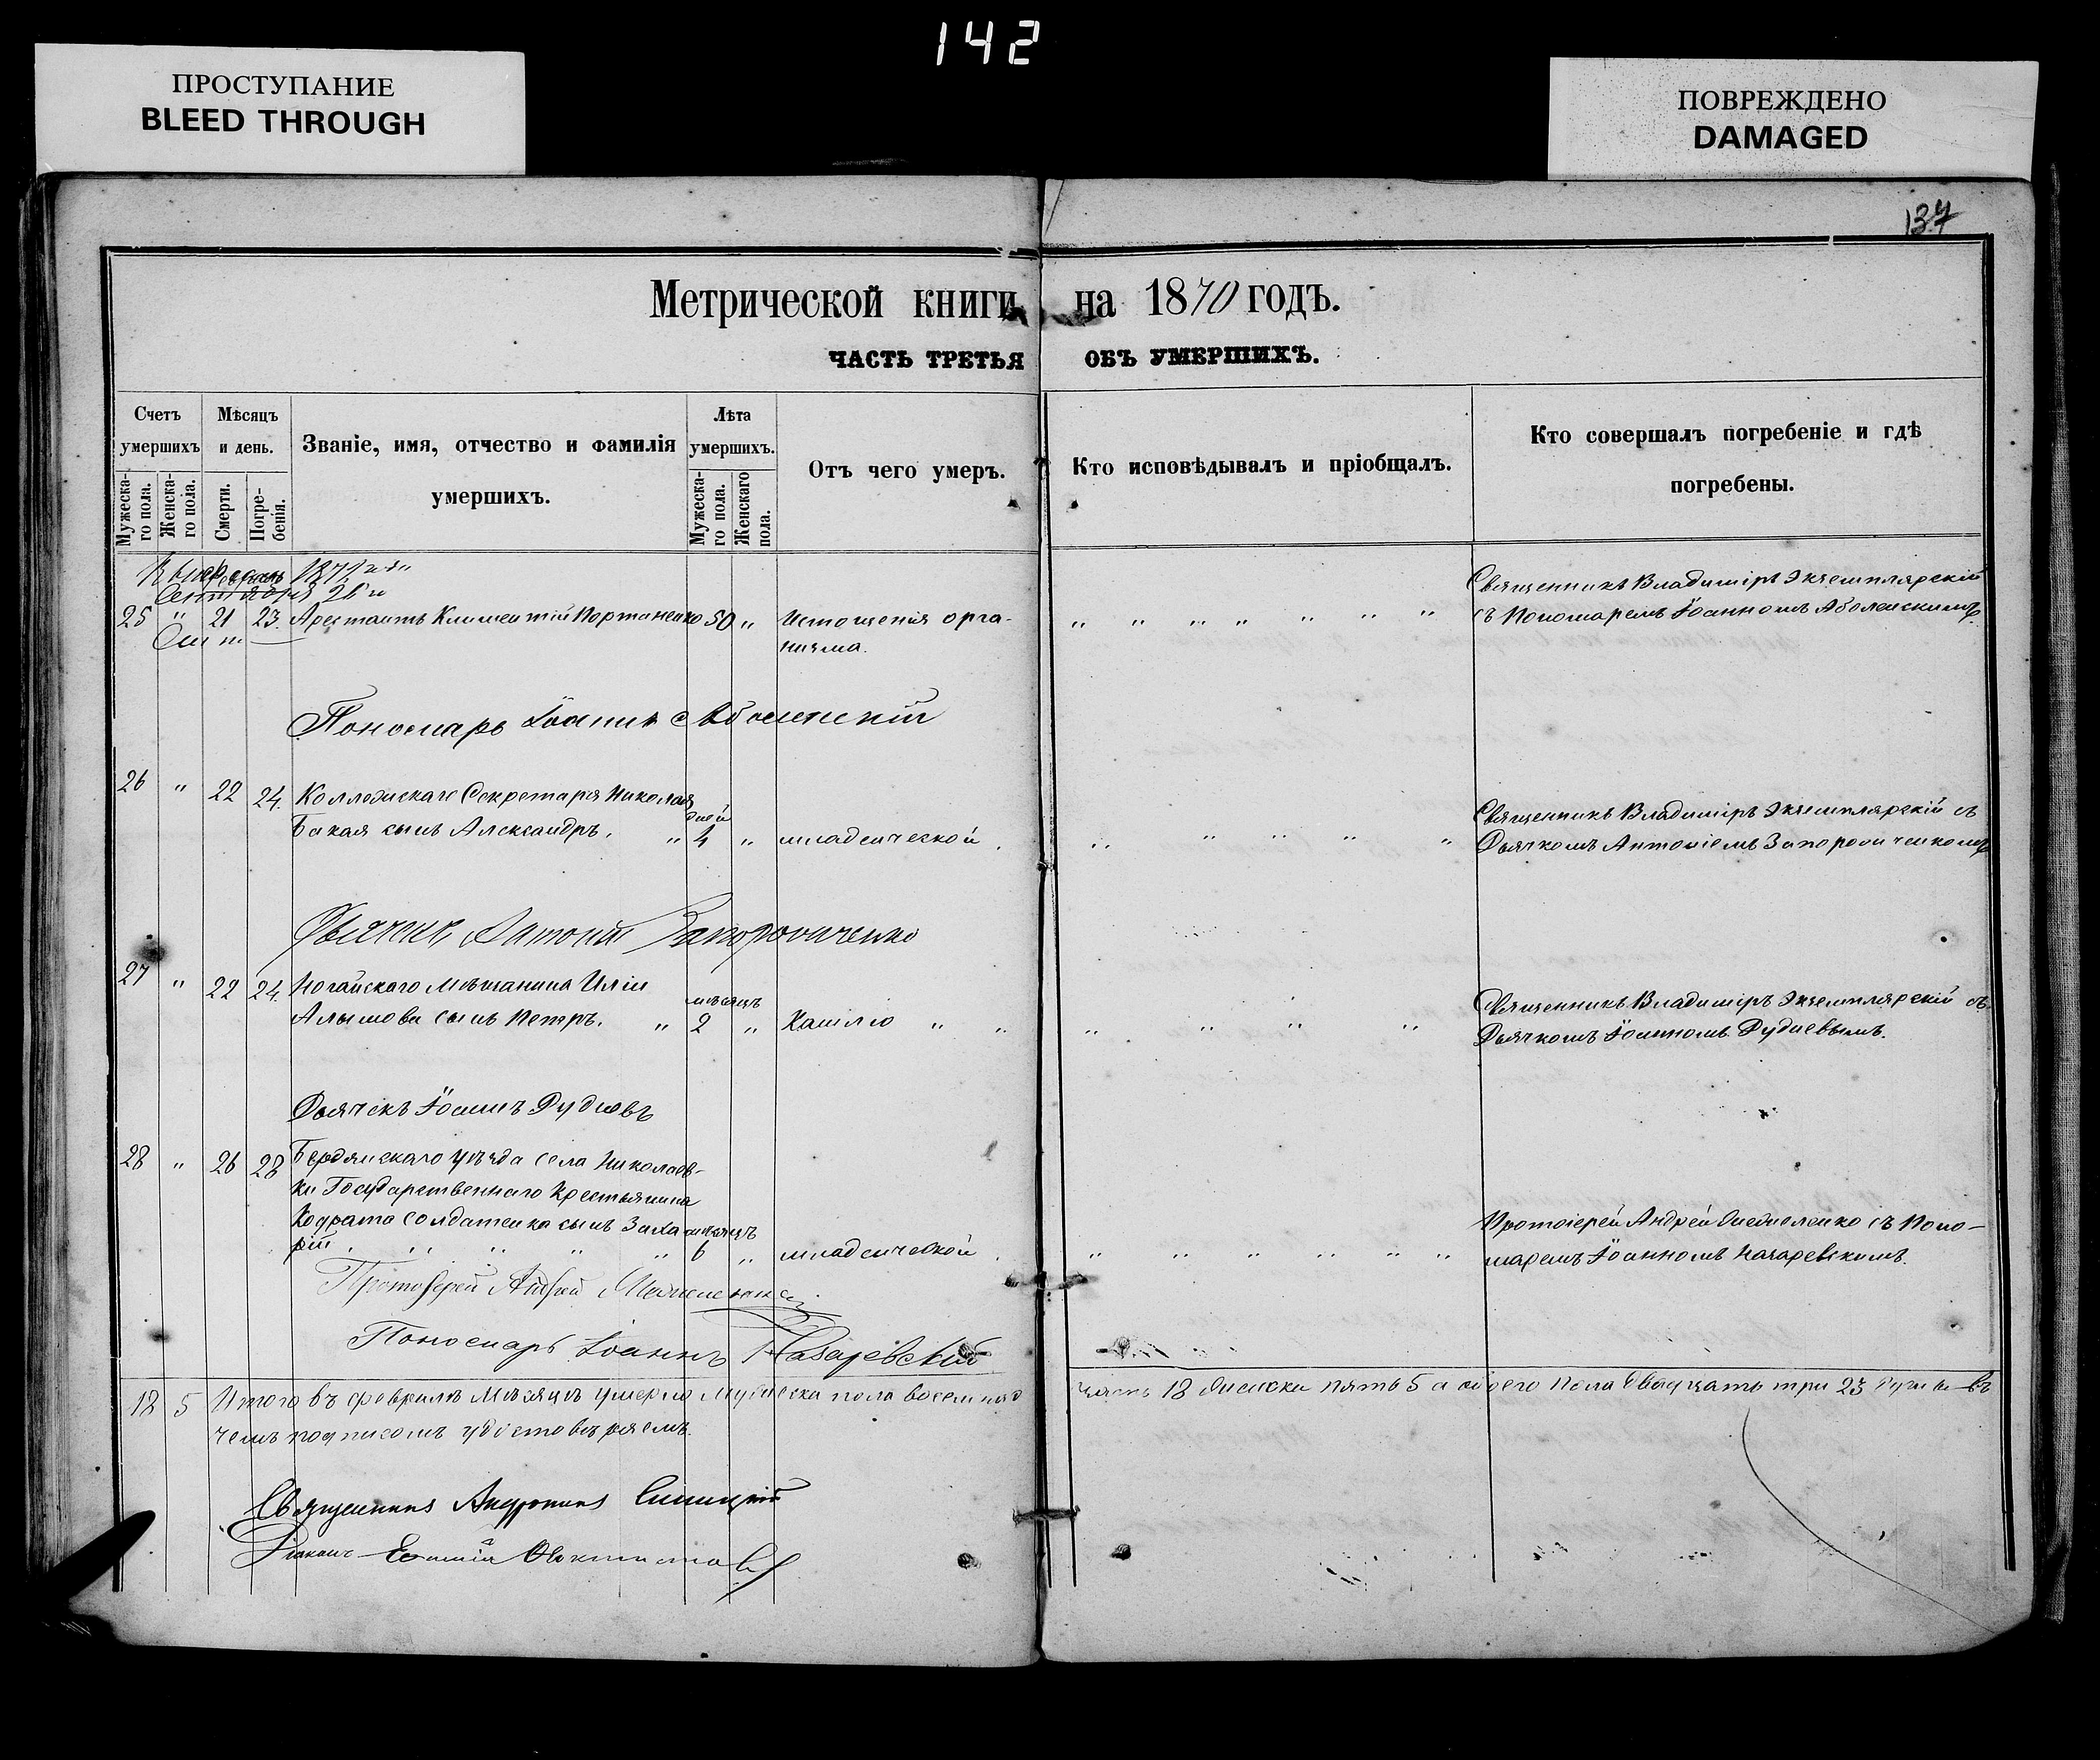 142
ПРОСТУПАНИЕ
BLEED THROUGH
ПОВРЕЖДЕНО
DAMAGED
137
Метрической книги на 1870 годъ.
ЧАСТЬ ТРЕТЬЯ ОБЪ УМЕРШИХЪ.
Счетъ умершихъ
Мужеска-го пола.
Женска-го пола.
Мѣсяцъ и день.
Смерти.
Погре-бенія.
Званіе, имя, отчество и фамилія умершихъ.
Лѣта умершихъ.
Мужеска-го пола.
Женскаго пола.
Отъ чего умеръ.
Кто исповѣдывалъ и пріобщалъ.
Кто совершалъ погребеніе и гдѣ погребены.
1871
Сентября 26
25 " 21 23. Арестантъ Климентій Портаненко 50 " Истощенія орга-
низма.
Священникъ Владиміръ Экземплярскій
съ Пономаремъ Іоанномъ Аболенскимъ.
Пономарь Іоаннъ Аболенскій
26 " 22 24. Коллежскаго Секретаря Николая
Бакая сынъ Александръ. " дней 4 " младенческой.
Священникъ Владиміръ Экземплярскій съ
Дьячкомъ Антоніемъ Запорожченкомъ
Дьячекъ Антоній Запорожченко
27 " 22 24. Ногайскаго Мѣщанина Иліи
Алымова сынъ Петръ. " мѣсяцъ 2 " Кашлю " "
Священникъ Владиміръ Экземплярскій съ
Дьячкомъ Іоанномъ Рудневымъ.
Дьячекъ Іоаннъ Рудневъ
28 " 26 28 Бердянскаго уѣзда села Николаев-
ки Государственнаго Крестьянина
Кодрата Солдатенка сынъ Заха
рій. мѣсяцъ 6 " младенческой.
Протоіерей Андрей съ Поно-
маремъ Іоанномъ Назаревскимъ.
Протоіерей Андрей
Пономарь Іоаннъ Назаревскій
18 5 Итого въ февралѣ мѣсяцѣ умерло мужеска пола восемнад
цать 18 женска пять 5 а обоего пола двадцать три 23 въ
чемъ подписомъ удостовѣряемъ.
Священникъ Андроникъ Синицкій
Діаконъ